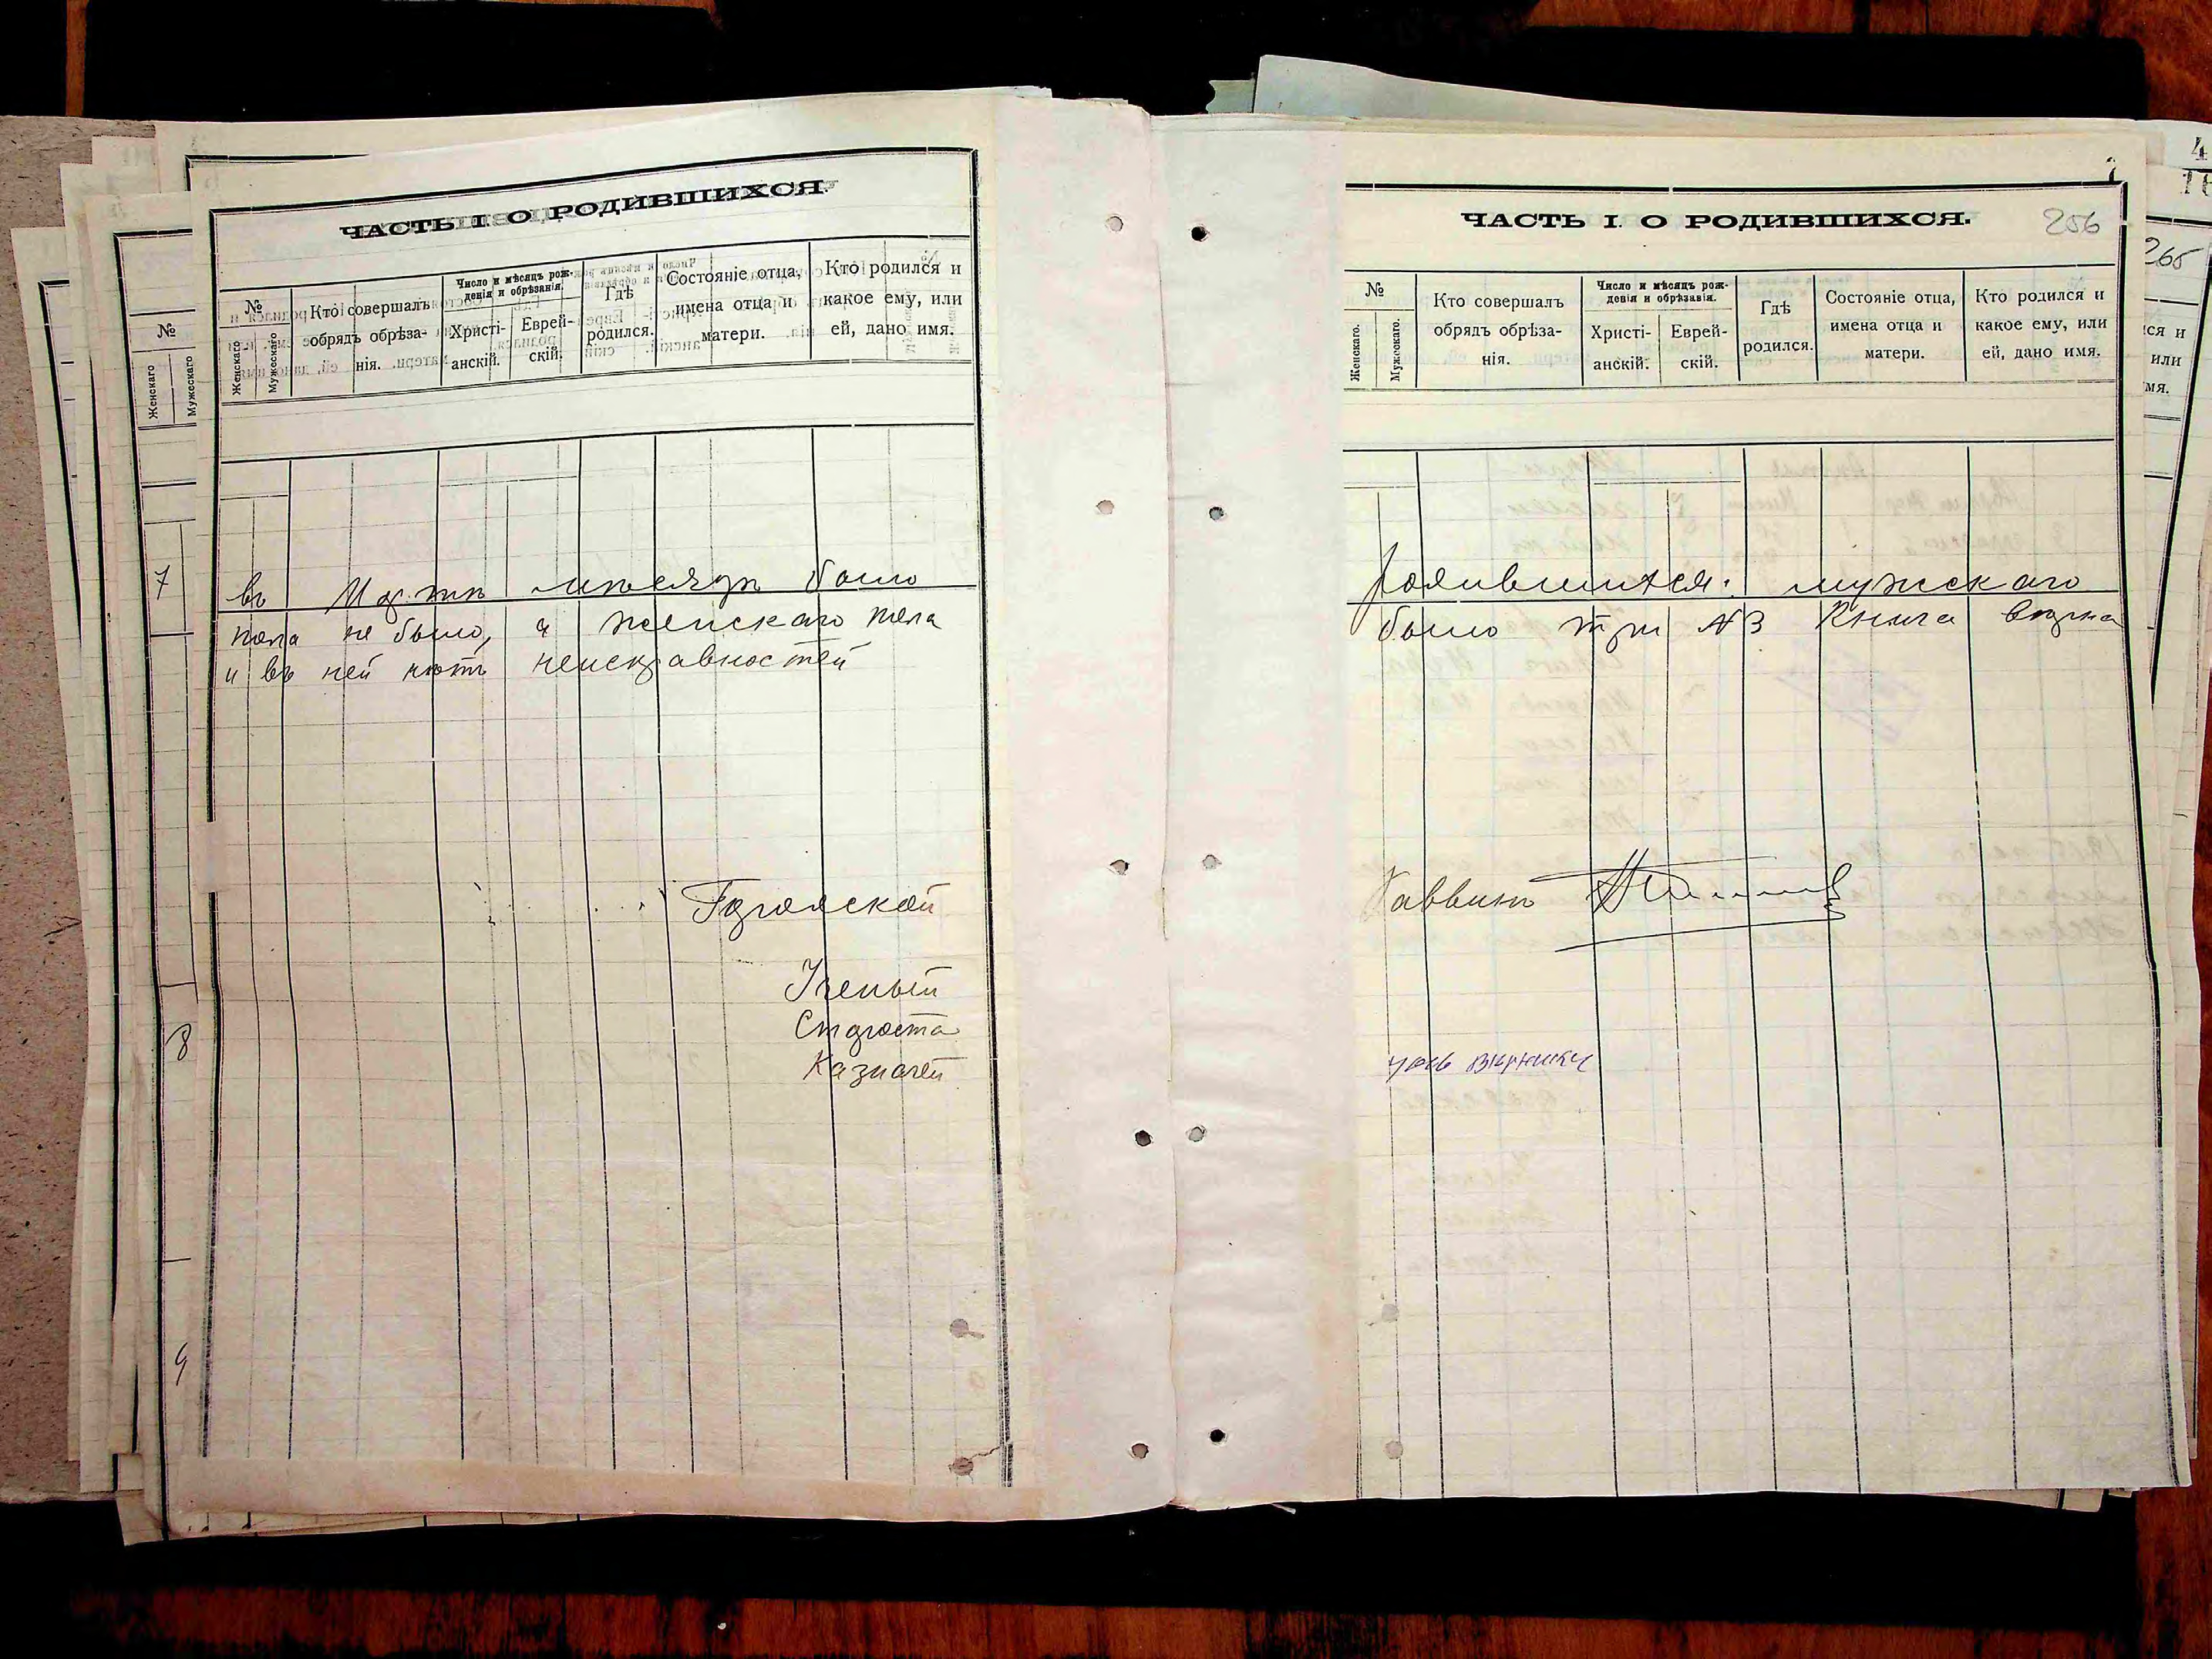 ЧАСТЬ I. О РОДИВШИХСЯ.
№
Женскаго
Мужескаго
Кто совершалъ
обрядъ обрѣза-
нія.
Число и мѣсяцъ рож-
денія и обрѣзанія.
Христі-
анскій.
Еврей-
скій.
Гдѣ
родился.
Состояніе отца,
имена отца и
матери.
Кто родился и
какое ему, или
ей, дано имя.
№
Женскаго
Мужескаго
7
8
9
въ Мартѣ мѣсяцѣ было
пола не было, а женскаго пола
и въ ней нѣтъ неисправностей
Городской
Ученый
Староста
Казначей
ЧАСТЬ I. О РОДИВШИХСЯ.
256
№
Женскаго.
Мужескаго.
Кто совершалъ
обрядъ обрѣза-
нія.
Число и мѣсяцъ рож-
денія и обрѣзанія.
Христі-
анскій.
Еврей-
скій.
Гдѣ
родился.
Состояніе отца,
имена отца и
матери.
Кто родился и
какое ему, или
ей, дано имя.
родившихся: мужскаго
было три №3 Книга вѣрна
Раввинъ
4
16
265
ся и
или
мя.